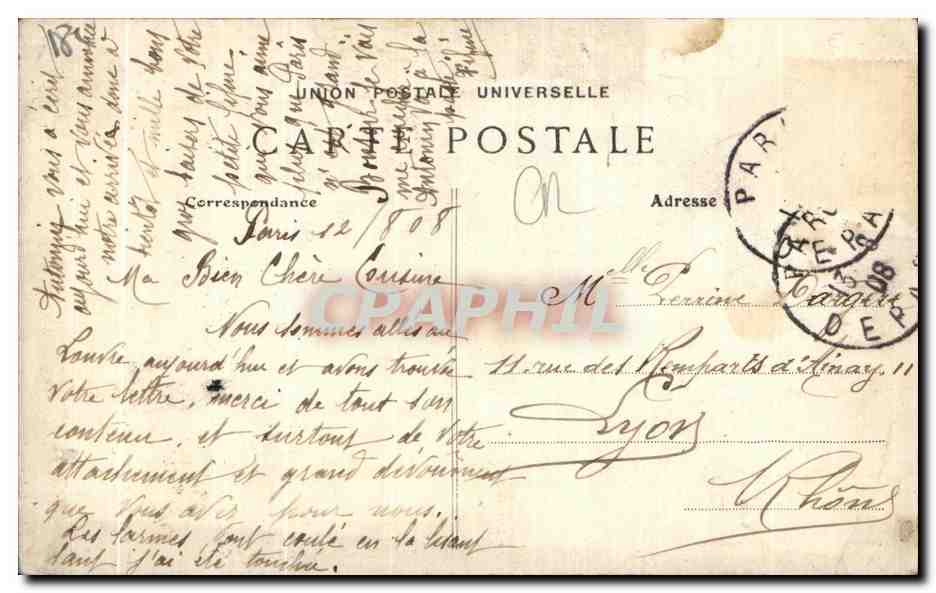 UNION POSTALE UNIVERSELLE
CARTE POSTALE
Correspondance
Adresse
Paris 12/8 08
Ma Bien Chère Cousine
Nous sommes allés au
Louvre aujourd'hui et avons trouvé
votre lettre, merci de tout son
contenu, et surtout de votre
attachement et grand dévouement
que vous avez pour nous.
Les larmes vont coulé en la lisant
tant j'ai été touchée.
Antonin vous a écrit
aujourd'hui et vous annonce
notre arrivée donc à
bientôt et mille bons
gros baisers de votre
petite
qui vous aime
plus que Paris
n'est grand
Bonne
Antonin va à la
Melle Perrine
11 rue des Remparts d'Ainay 11
Lyon
Rhône
PAR
PARIS
DEPART
13
08
CPAPHIL